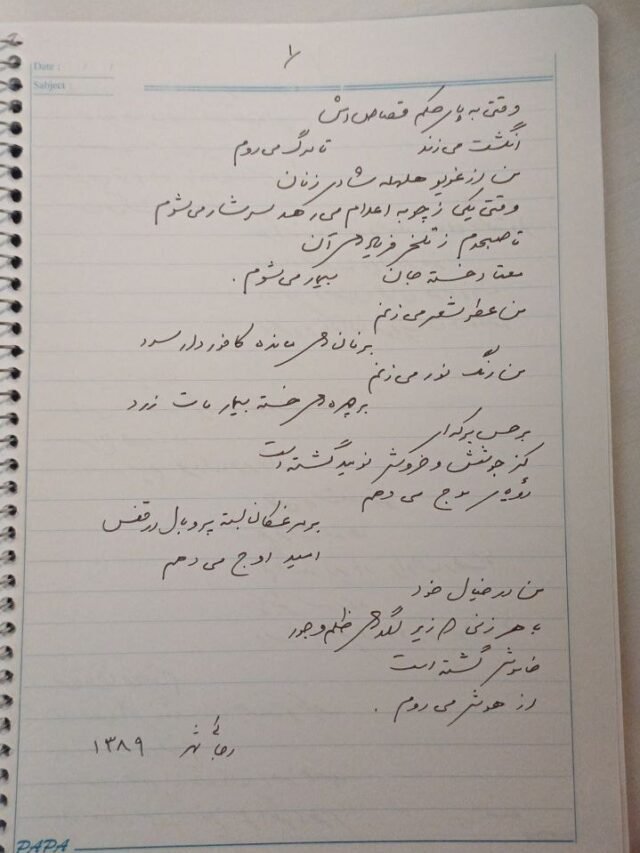 Date : / /
Subject :
وقتی به پای حکم قصاص اش
انگشت می زند تا مرگ می روم
من از غریو هلهله شادی زنان
وقتی یکی ز چوبه اعدام می رهد سرشار می شوم
تا صبحدم ز تلخی فریادهای آن
معتاد خسته جان بیمار می شوم .
من عطر شعر می زنم
بر نان های مانده کافور دار سرد
من رنگ نور می زنم
بر چهره های خسته بیمار مات زرد
بر حس برکه ای
کز جوشش و خروش نومید گشته است
رؤیای موج می دهم
بر مرغکان بسته پر و بال در قفس
امید اوج می دهم
من در خیال خود
با هر زنی که زیر لگدهای ظلم و جور
خاموش گشته است
از هوش می روم .
رجائی شهر ۱۳۸۹
PAPA